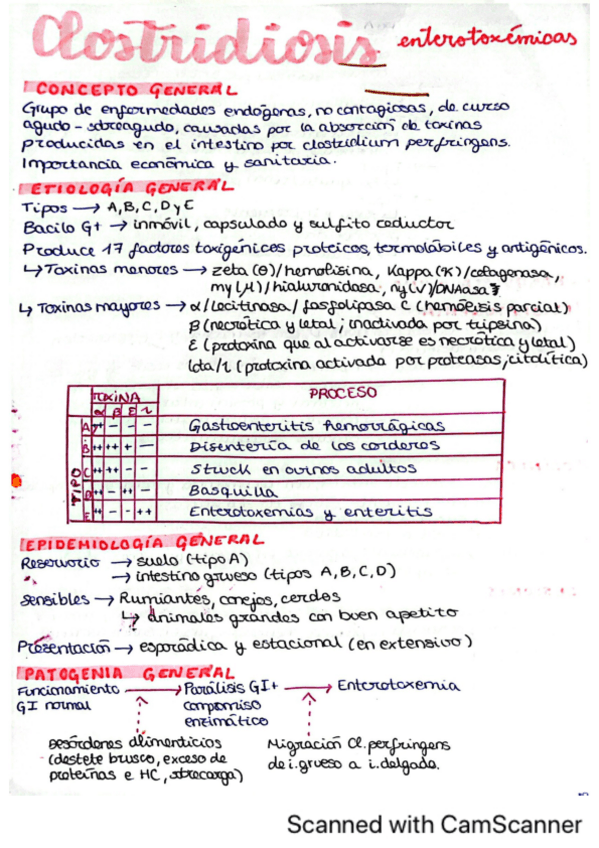 Clostridiosis enterotoxémicas
CONCEPTO GENERAL
Grupo de enfermedades endógenas, no contagiosas, de curso
agudo - sobreagudo, causadas por la absorción de toxinas
producidas en el intestino por clostridium perfringens.
Importancia económica y sanitaria.
ETIOLOGÍA GENERAL
Tipos → A, B, C, D y E
Bacilo G+ → inmóvil, capsulado y sulfito reductor
Produce 17 factores toxigénicos proteicos, termolábiles y antigénicos.
↳ Toxinas menores → zeta (θ)/hemolisina, Kappa (K)/colagenasa,
my (μ)/hialuronidasa, ny (V)/DNAasa
↳ Toxinas mayores → α/Lecitinasa/fosfolipasa C (hemólisis parcial)
β (necrótica y letal; inactivada por tripsina)
ε (protoxina que al activarse es necrótica y letal)
iota/ι (protoxina activada por proteasas; citolítica)
TOXINA PROCESO
α β ε ι
TIPO
A ++ - - - Gastroenteritis hemorrágicas
B ++ ++ + - Disentería de los corderos
C ++ ++ - - Struck en ovinos adultos
D ++ - ++ - Basquilla
E ++ - - ++ Enterotoxemias y enteritis
EPIDEMIOLOGÍA GENERAL
Reservorio → suelo (tipo A)
→ intestino grueso (tipos A, B, C, D)
Sensibles → Rumiantes, conejos, cerdos
↳ Animales grandes con buen apetito
Presentación → esporádica y estacional (en extensivo)
PATOGENIA GENERAL
Funcionamiento → Parálisis GI + → Enterotoxemia
GI normal compromiso
enzimático
Desórdenes alimenticios Migración Cl. perfringens
(destete brusco, exceso de de i. grueso a i. delgado.
proteínas e HC, sobrecarga)
Scanned with CamScanner